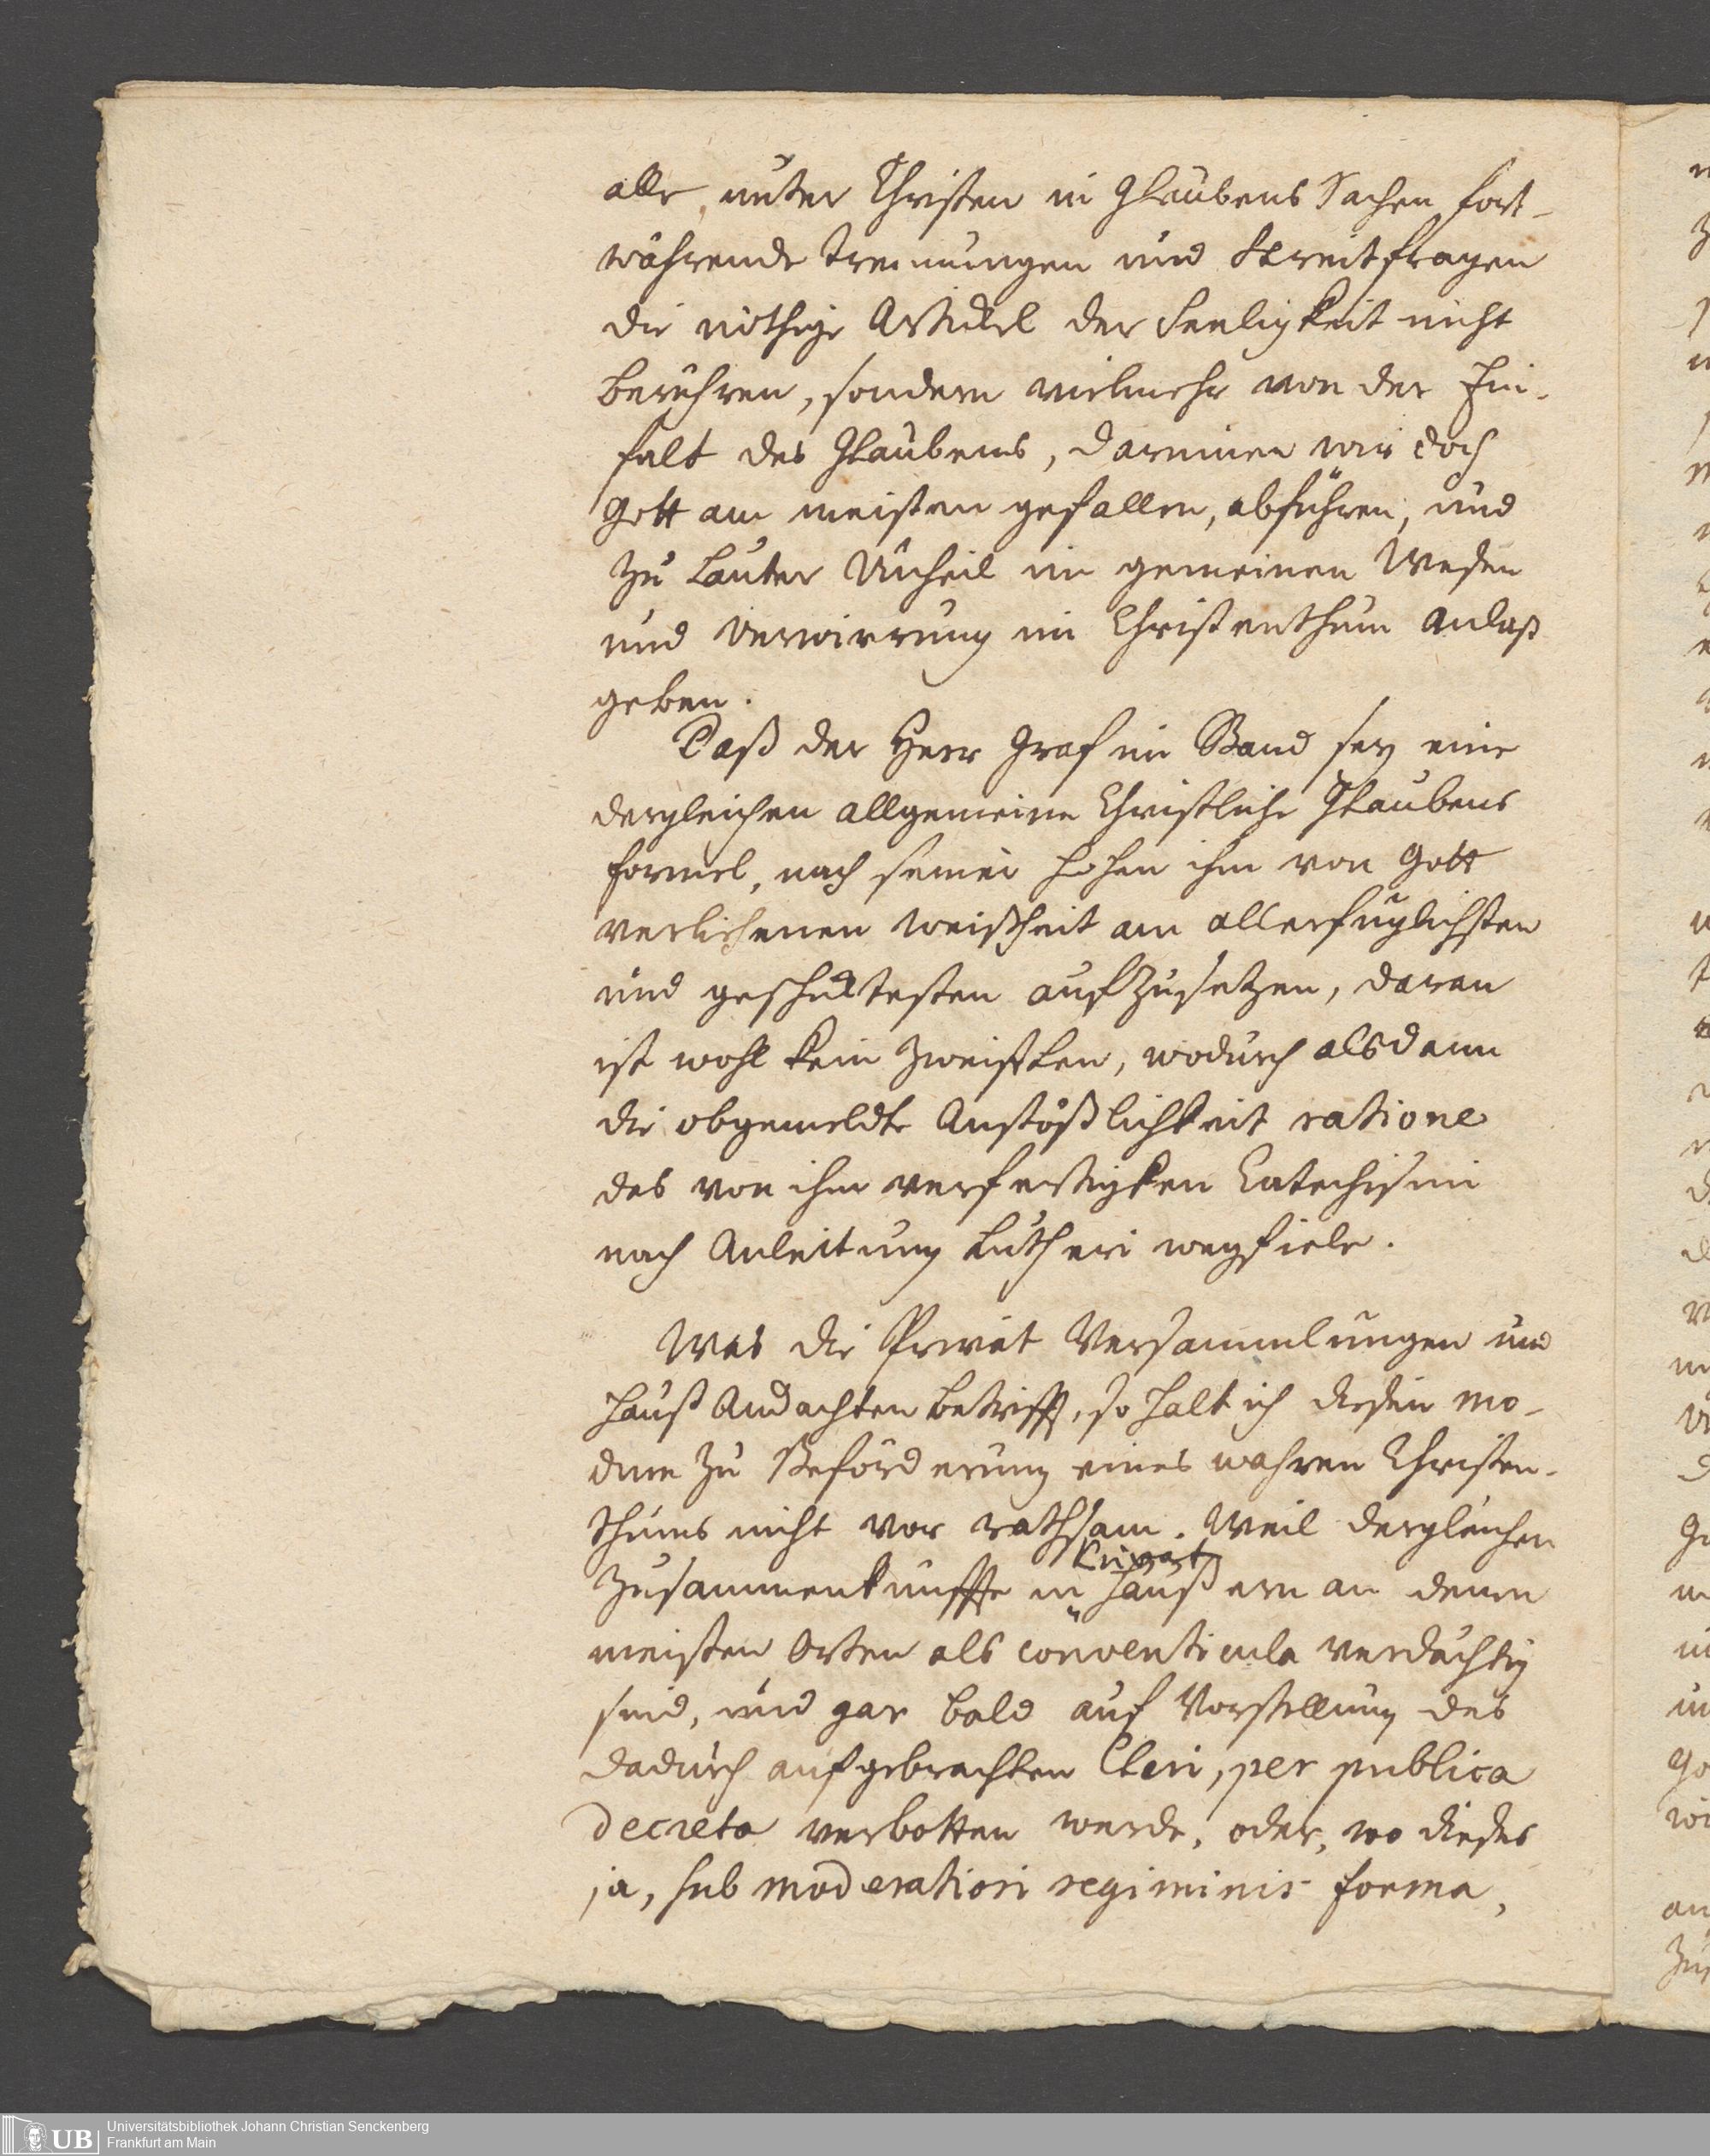 alle, unter Christen in Glaubens Sachen fort-
währende Trennungen und Streitfragen
die nöthige Artickel der Seeligkeit nicht
berühren, sondern vielmehr von der Ein-
falt des Glaubens, darinnen wir doch
Gott am meisten gefallen, abführen, und
zu lauter Unheil im gemeinen Wesen
und Verwirrung im Christenthum Anlaß
geben.
Daß der Herr Graf im Stand sey eine
dergleichen allgemeine Christliche Glaubens
formel, nach seiner hohen ihm von Gott
verliehenen Weißheit am allerfüglichsten
und geschicktesten aufzusetzen, daran
ist wohl kein Zweiffel, wodurch alsdann
die obgemeldte Anstößlichkeit ratione
des von ihm verfertigten Catechismi
nach Anleitung Lutheri wegfiele.
Was die Privat Versammlungen und
Hauß Andachten betrifft, so halt ich diesen mo-
dum zu Beförderung eines wahren Christen-
thums nicht vor rathsam. Weil dergleichen
Privat
Zusammenkünffte in Häußern an denen
meisten Orten als conventicula verdächtig
sind, und gar bald auf Vorstellung des
dadurch aufgebrachten Cleri, per publica
decreta verbotten werde, oder, wo dieses
ja, sub moderatiori regiminis forma,
Universitätsbibliothek Johann Christian Senckenberg
Frankfurt am Main
UB